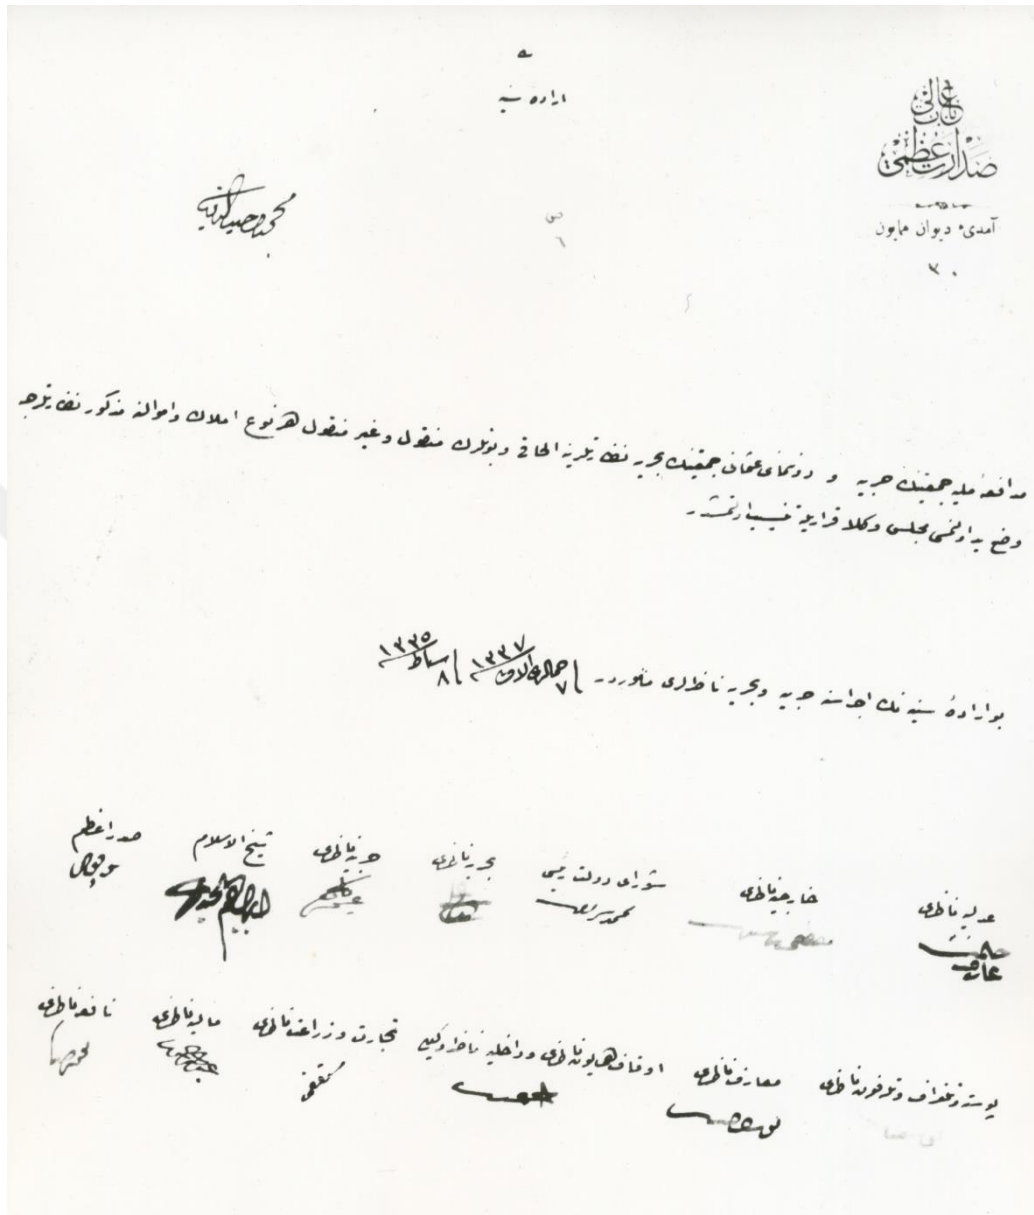 باب عالی
صدارت عظمی
آمدیء دیوان همایون
٣٠
ه
اراده سنیه
محمد وحیدالدین
٦
مدافعهٔ ملیه جمعیتنك حربیه و دونمای عثمانی جمعیتنك بحریه نظارتلرینه الحاقی وبونلرك منقول وغیر منقول هر نوع املاك واموالنه مذكور نظارتلرجه
وضع ید اولنمسی مجلس وكلا قراریله تنسیب اولنمشدر
بو ارادهٔ سنیه نك اجراسنه حربیه وبحریه ناظرلری مأموردر
٧ جمادی الاولی ١٣٣٧
٨ شباط ١٣٣٥
صدر اعظم
شیخ الاسلام
حربیه ناظری
بحریه ناظری
شورای دولت رئیسی
خارجیه ناظری
عدلیه ناظری
توفیق
ابراهیم
مصطفی
نافعه ناظری
مالیه ناظری
تجارت وزراعت ناظری
اوقاف همایون ناظری وداخلیه ناظر وكیلی
معارف ناظری
پوسته وتلغراف وتلفون ناظری